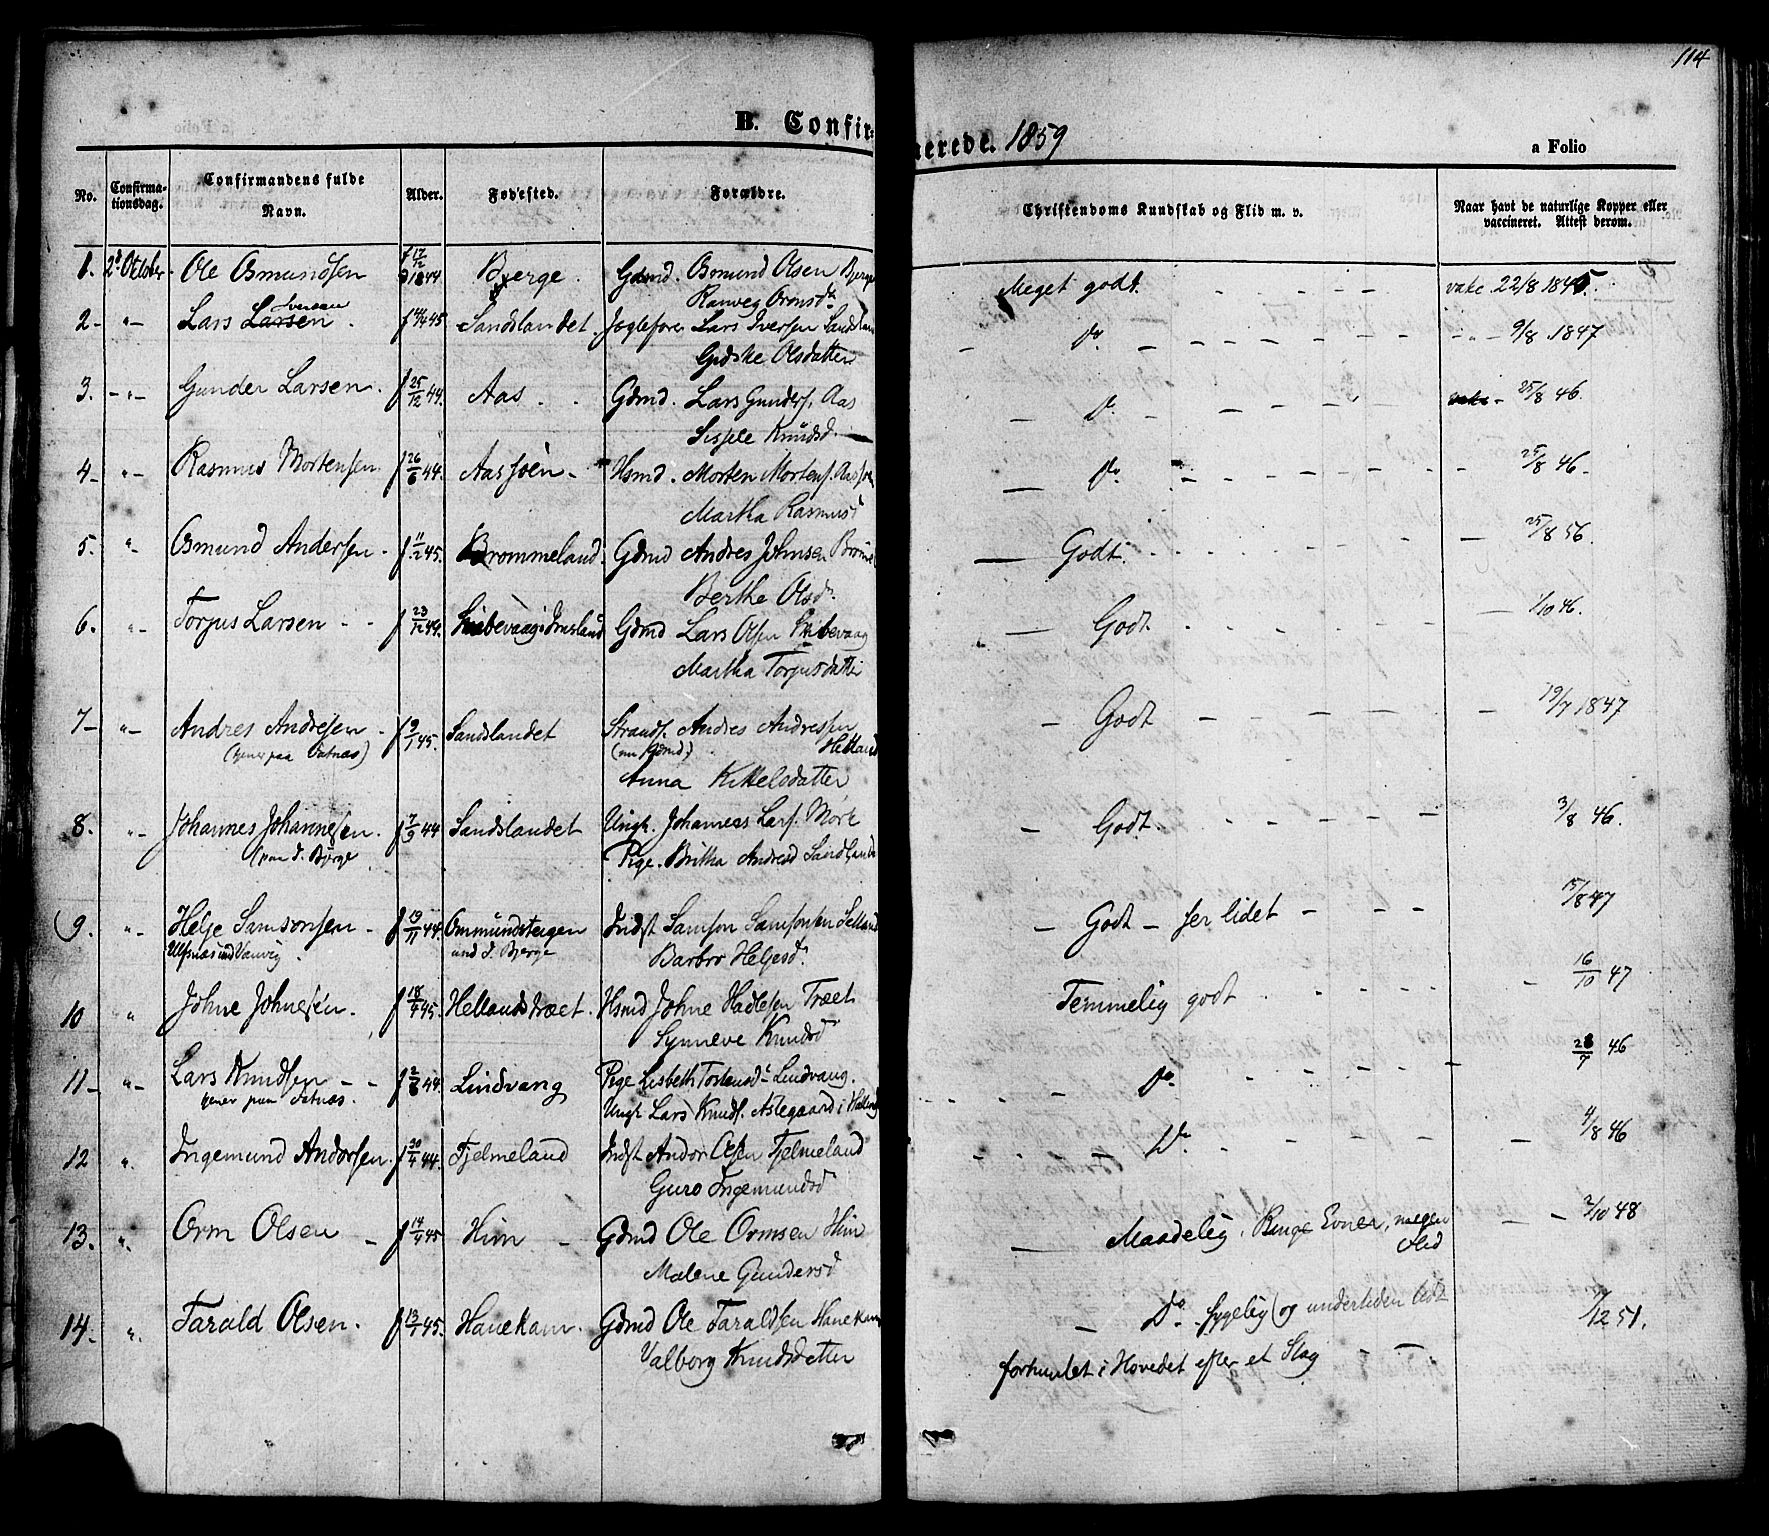 114
B. Confirmerede. 1859
a Folio
No. Confirmationsdag. Confirmandens fulde Navn. Alder. Fødested. Forældre. Christendoms Kundskab og Flid m. v. Naar havt de naturlige Kopper eller vaccineret. Attest derom.
1. 2d October Ole Osmundsen f 17/12 1844 Bjerge. Gdmd. Osmund Olsen Bjerge Meget godt. vakc. 22/8 1845.
Ranveg Ormsd
2 - " - Lars Larsen Iversen. f 14/4 45 Sandslandet. Lars Iversen Do. - " - 9/8 1847
Gjdske Olsdatter
3. - " - Gunder Larsen. f 25/12 44. Aas Gdmd. Lars Gunders. Aas Do. 25/8 46.
Sissele Knudsd.
4 - " - Rasmus Mortensen f 26/6 44. Aassøen - Hsmd. Morten Mortens. Aassøe Do. 25/8 46 -
Martha Rasmusd
5. " - Osmund Andersen - f 11/2 45. Brommeland. Gdmd Andres Johnsen Godt. 25/8 56.
Berthe Olsd.
6. " - Torjus Larsen - - f 23/12 44. Gdmd Lars Olsen Godt. 1/10 46.
Martha Torjusdatter
7 - " - Andres Andresen - f 9/1 45. Sandslandet Strands. Andres Andressen Godt 19/7 1847
(tjener paa Fatnæs) (nu Gdmd.) Helland
Anna Kittelsdatter
8. " - Johannes Johannesen. f 7/9 44 Sandslandet Ungk. Johannes Lars. Mørk Godt. 3/8 46.
Pige. Britha Andresd Sandslandet
9. " - Helje Samsonsen - f 19/11 44. Osmundsteigen Indst Samson Samsonsen Godt - ser lidet 15/8 47
und d. Bjerge Barbro Heljesd.
10 " Johne Johnesen. f 18/4 45. Hellandstræet. Hsmd Johne Hadlesen Træet Temmelig godt 16/10 47
Synneve Knudsd
11 - " - Lars Knudsen - - f 2/6 44. Lindvang Pige Lisbeth Torstensd - Lindvang. Do. 28/7 46
tjener paa Fatnæs. Ungk. Lars Knuds.
12 " Ingemund Andorsen. f 20/4 44. Fjelmeland Indst Andor Olsen Fjelmeland Do. 4/8 46
Guro Ingemundsd
13. " - Orm Olsen - f 14/4 45 Him - Gdmd Ole Ormsen Him Maadelig. Ringe Evner, megen Flid 2/10 48
Malene Gundersd
14. " Tarald Olsen. f 13/1 45. Hanekam. Gdmd Ole Taraldsen Hanekam Do. sygelig og undertiden lidt 7/12 51.
Valborg Knudsdatter forhuulet i Hovedet efter et Slag